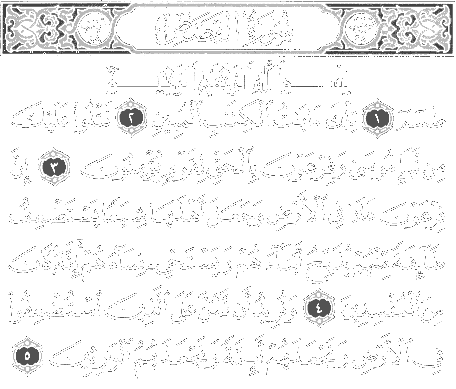 سورة القصص
بسم الله الرحمن الرحيم
طسم ١ تلك آيات الكتاب المبين ٢ نتلوا عليك
من نبإ موسى وفرعون بالحق لقوم يؤمنون ٣ إن
فرعون علا في الأرض وجعل أهلها شيعا يستضعف
طائفة منهم يذبح أبناءهم ويستحي نساءهم إنه كان
من المفسدين ٤ ونريد أن نمن على الذين استضعفوا
في الأرض ونجعلهم أئمة ونجعلهم الوارثين ٥